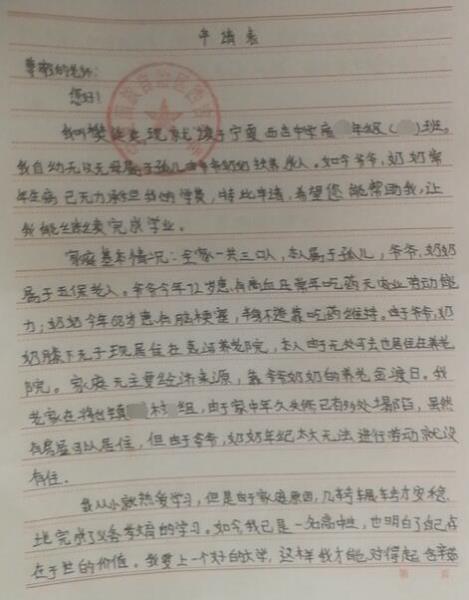 申请表
尊敬的老师：
您好！
我叫樊 现就读于宁夏西吉中学高 年级( )班。
我自幼无父无母属于孤儿由爷爷奶奶扶养成人。如今爷爷,奶奶常
年生病已无力承担我的学费，特此申请,希望您能帮助我,让
我能继续完成学业。
家庭基本情况：全家一共三口人,本人属于孤儿,爷爷,奶奶
属于五保老人。爷爷今年72岁患有高血压常年吃药无法业劳动能
力,奶奶今年68岁患有脑梗塞, 不遂靠吃药维持。由于爷爷,奶
奶膝下无子现居住在 养老院,本人由于无处可去也居住在养老
院。家庭无主要经济来源,靠爷爷奶奶的养老金渡日。我
老家在将台镇 村 组,由于家中年久失修已有多处塌陷,虽然
有房屋可以居住,但由于爷爷,奶奶年纪太大无法进行劳动就没
有住。
我从小就热爱学习,但是由于家庭原因,几经辗转才安稳
地完成了义务教育的学习。如今我已是一名高中生,也明白了自己存
在于世的价值。我要上一个好的大学,这样我才能对得起含辛茹